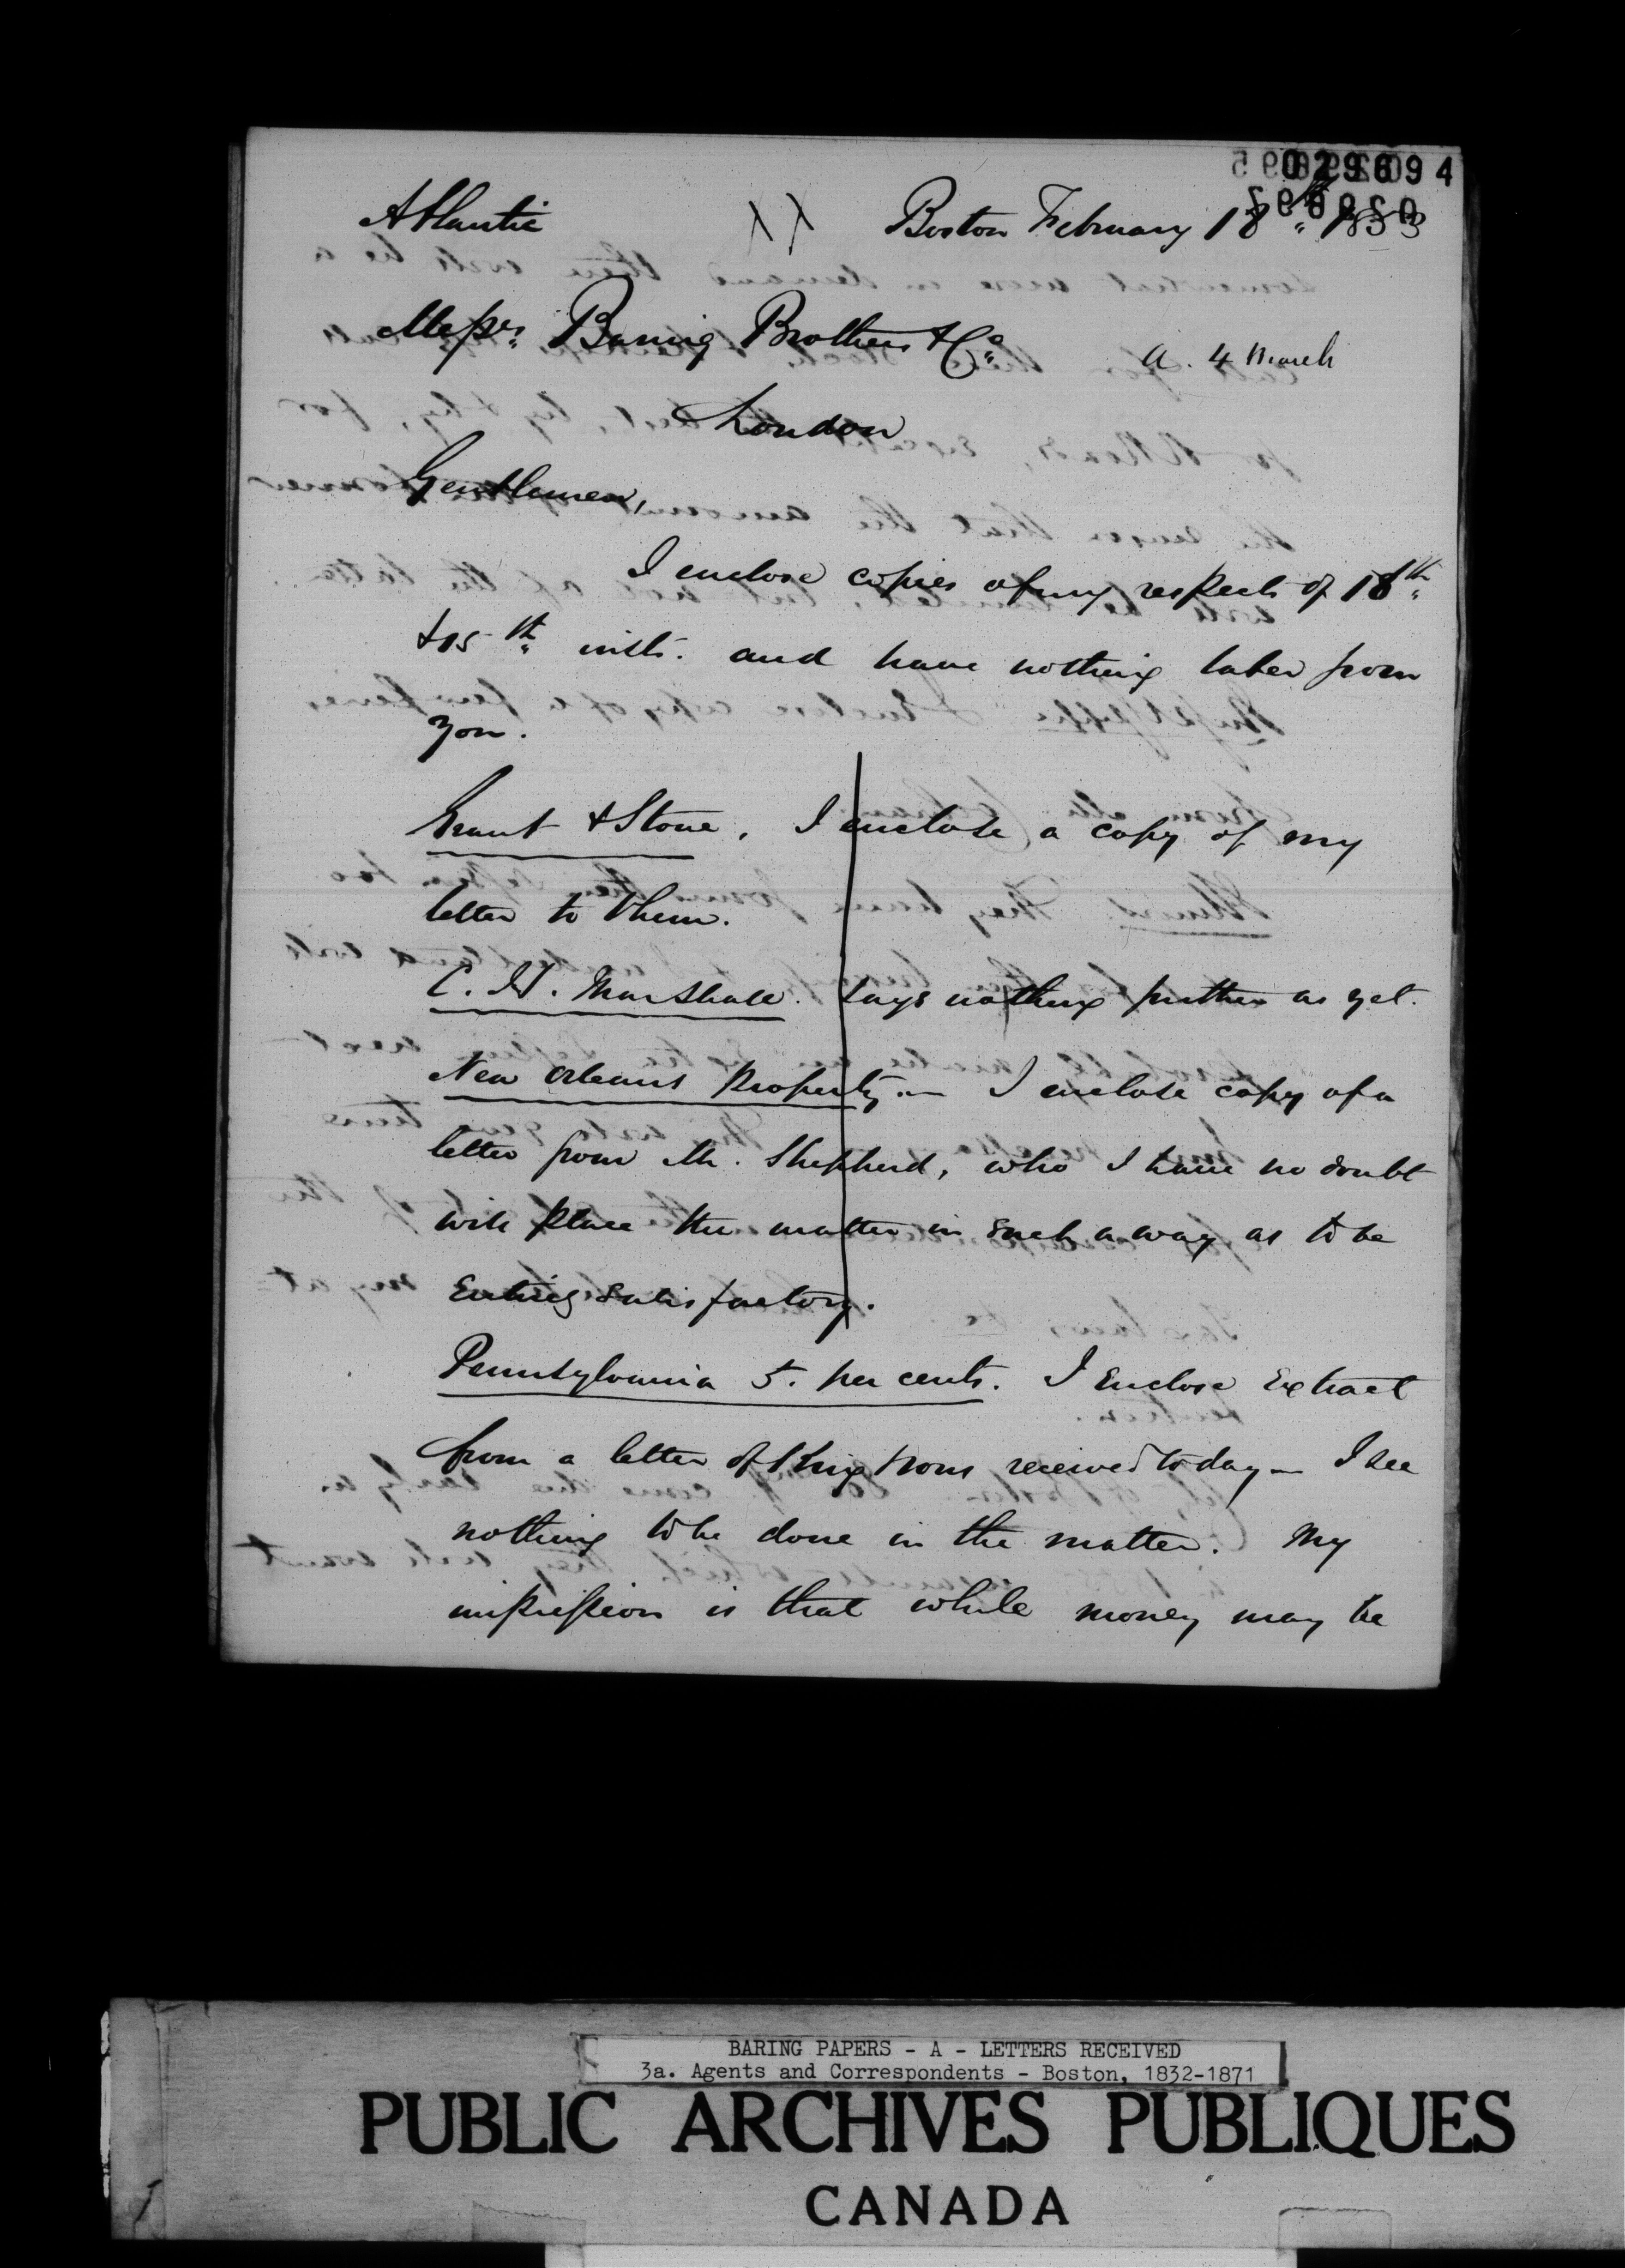 029694
Atlantic XX Boston February 18" 1853
Messrs. Baring Brothers & Co. a. 4 March
London
Gentlemen,
I enclose copies of my respects of 18th
& 15th inst. and have nothing later from
you.
Grant & Stone. I enclose a copy of my
letter to them.
C. H. Marshall. Says nothing further as yet.
New Orleans Property.— I enclose copy of a
letter from Mr. Shepherd, who I have no doubt
will place the matter in such a way as to be
Entirely satisfactory.
Pennsylvania 5. per cents. I Enclose Extract
from a letter of received today— I see
nothing to be done in the matter. My
impression is that while money may be
BARING PAPERS - A - LETTERS RECEIVED
3a. Agents and Correspondents - Boston, 1832-1871
PUBLIC ARCHIVES PUBLIQUES
CANADA